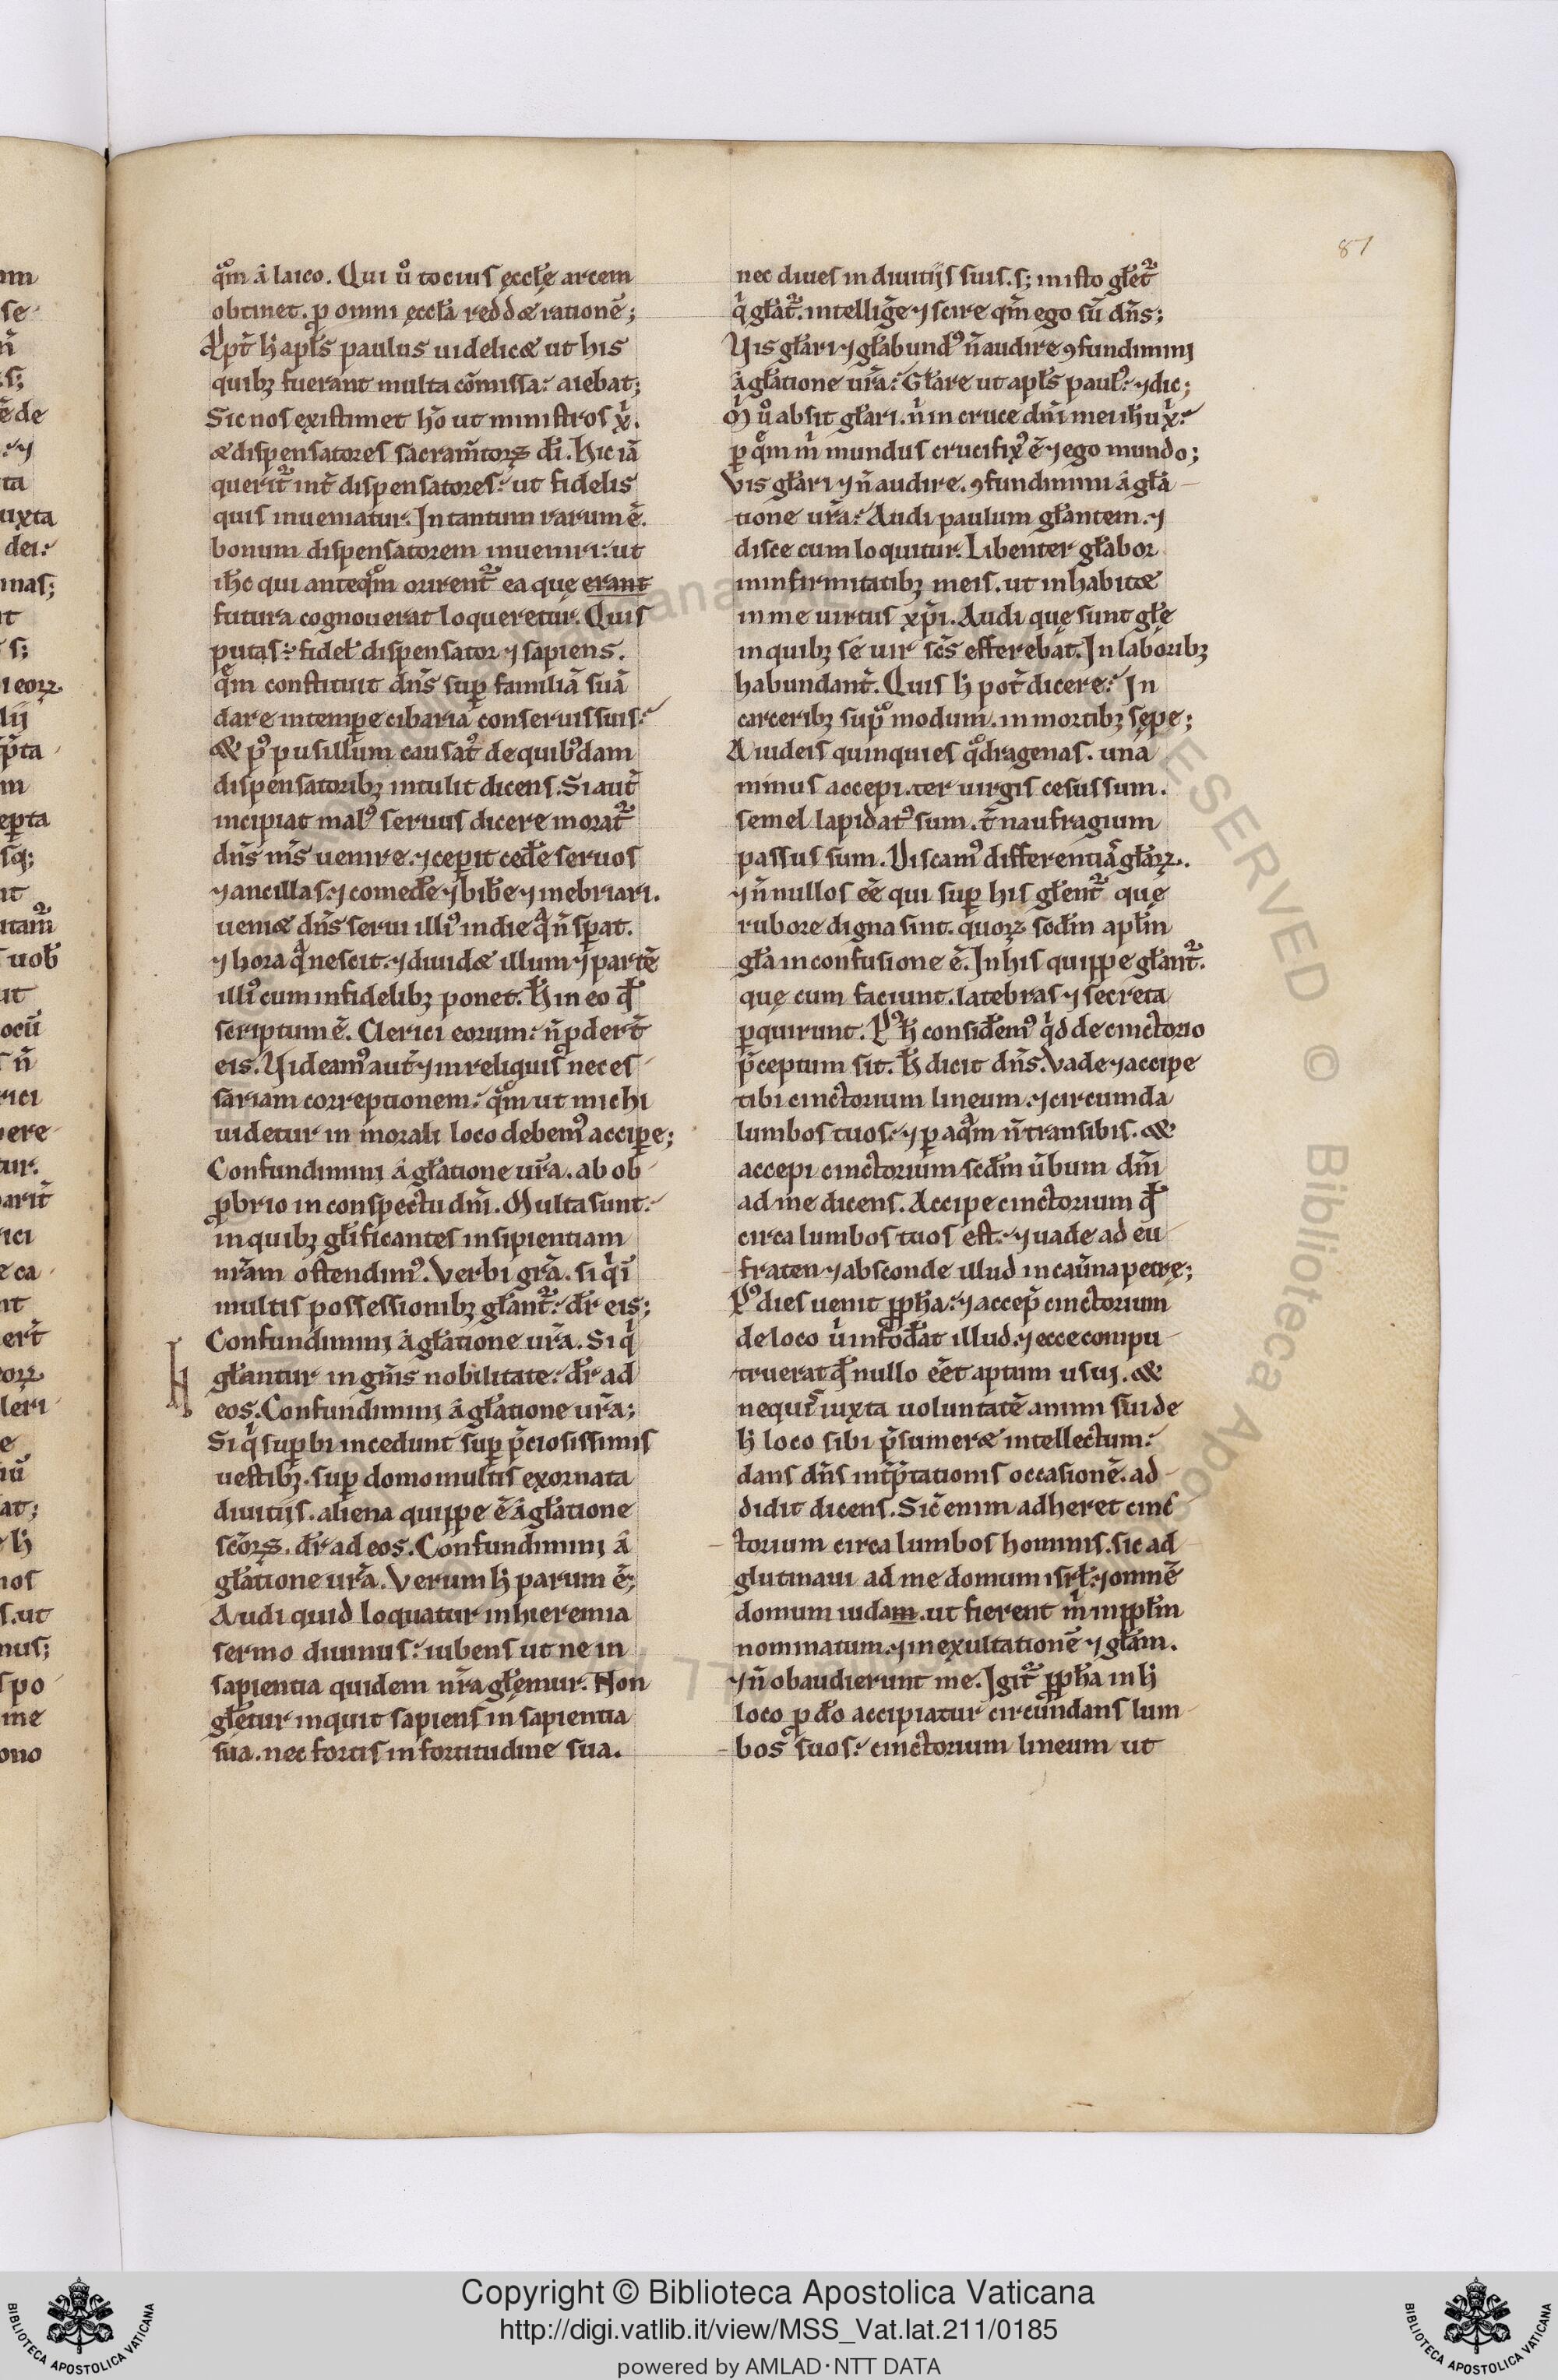 81
q̊m á laico. Qui ů tocius ęccłę arcem
obtinet. ꝓ omni ęccła reddæ rationē;
Ꝓpt̄ ħ apłs paulus uidelicæ ut his
quibꝫ fuerant multa cōmissa: aiebat;
Sic nos existimet hō ut ministros xͥ.
æ dispensatores sacram̄torꝝ dī. Hic iā
querit᷑ int̄ dispensatores: ut fidelis
quis inueniatur. In tantum rarum ē.
bonum dispensatorem inueniri: ut
ih̄c qui anteq̊m orirent᷑ ea quę erant
futura cognouerat loqueretur. Quis
putas: fideł dispensator ⁊ sapiens.
quē constituit dn̄s suꝑ familiā suā
dare in tempore cibaria conseruis suis:
& pꝰ pusillum causatꝰ de quibꝰdam
dispensatoribꝫ intulit dicens. Si aut̄
incipiat malꝰ seruus dicere morat᷑
dn̄s m̄s uenire. ⁊ cepit ced̄e seruos
⁊ ancillas. ⁊ comed̄e ⁊ bib̄e ⁊ inebriari.
ueniæ dn̄s serui illiꝰ in die qͣ n̄ sꝑat.
⁊ hora qͣ nescit. ⁊ diuidæ illum ⁊ partē
illiꝰ cum infidelibꝫ ponet. Ħ in eo qđ
scriptum ē. Clerici eorum: n̄ ꝓdert̄
eis. Videamꝰ aut̄ ⁊ in reliquis neces
sariam correptionem: q̊m ut michi
uidetur in morali loco debemꝰ accipe;
Confundimini á głatione ur̄a. ab ob
ꝓbrio in conspectu dn̄i. Multa sunt:
in quibꝫ głificantes insipientiam
nr̄am ostendimꝰ. Verbi gr̄a. si qͥ ī
multis possessionibꝫ głant᷑: dr̄ eis;
Confundimini á głatione ur̄a. Si qͥ
głantur in gn̄is nobilitate: dr̄ ad
eos. Confundimini á głatione ur̄a;
Si qͥ suꝑbi incedunt suꝑ p̄ciosissimis
uestibꝫ. suꝑ domo multis exornata
diuitiis. aliena quippe ē á głatione
scōrꝝ. dr̄ ad eos. Confundimini á
głatione ur̄a. Verum ħ parum ē;
Audi quid loquatur in hieremia
sermo diuinus: iubens ut ne in
sapientia quidem nr̄a głemur. Non
głetur inquit sapiens in sapientia
sua. nec fortis in fortitudine sua.
nec diues in diuitijs suis. s; in isto głet᷑
qͥ głat᷑. intelliḡe ⁊ scire qm̄ ego sū dn̄s;
Vis głari ⁊ głabundꝰ n̄ audire ꝯfundimini
á głatione ur̄a: Głare ut apłs paulꝰ: ⁊ dic;
M̊ ů absit głari. nͥ in cruce dn̄i mei ih̄u xͥ:
ꝑ q̊m mͥ mundus crucifixꝰ ē ⁊ ego mundo;
Vis głari ⁊ n̄ audire. ꝯfundimini á gła
tione ur̄a: Audi paulum głantem. ⁊
disce cum loquitur. Libenter głabor
in infirmitatibꝫ meis. ut inhabitæ
in me uirtus xp̄i. Audi quę sunt głę
in quibꝫ se uir sc̄s efferebat. In laboribꝫ
habundant̄. Quis ħ pot̄ dicere: In
carceribꝫ sup̊ modum. in mortibꝫ sępe;
A iudeis quinquies qͦdragenas. una
minus accepi. ter uirgis cesus sum.
semel lapidatꝰ sum. t̄ naufragium
passus sum. Discamꝰ differentiā głaꝝ.
⁊ n̄ nullos eē qui suꝑ his głent᷑ quę
rubore digna sint. quorꝝ scdm̄ apłm
gła in confusione ē. In his quippe głant᷑.
quę cum faciunt. latebras ⁊ secreta
ꝑquirunt. Pꝰ ħ consid̄emꝰ qͥd de cinctorio
p̄ceptum sit. Ħ dicit dn̄s. Vade ⁊ accipe
tibi cinctorium lineum. ⁊ circumda
lumbos tuos: ⁊ ꝑ aqͣm n̄ transibis. &
accepi cinctorium scdm̄ ūbum dn̄i
ad me dicens. Accipe cinctorium qđ
circa lumbos tuos est: ⁊ uade ad eu
fraten ⁊ absconde illud in cau̇na petrę;
Pꝰ dies uenit ꝓph̄a: ⁊ accep̄ cinctorium
de loco uͥ infod̄at illud. ⁊ ecce compu
truerat qđ nullo eēt aptum usui. &
nequir̄ iuxta uoluntatē animi sui de
ħ loco sibi p̄sumeræ intellectum:
dans dn̄s int̄p̄tationis occasionē. ad
didit dicens. Sic̄ enim adheret cinc
torium circa lumbos hominis. sic ad
glutinaui ad me domum isrł. ⁊ omnē
domum iudam. ut fierent mͥ in ppłm
nominatum. ⁊ in exultationē ⁊ głam.
⁊ n̄ obaudierunt me. Igit᷑ ꝓph̄a in ħ
loco ꝓ do accipiatur circūndans lum
bos suos: cinctorium lineum ut
Copyright © Biblioteca Apostolica Vaticana
http://digi.vatlib.it/view/MSS_Vat.lat.211/0185
powered by AMLAD·NTT DATA